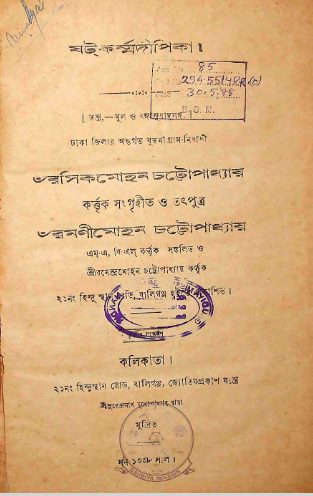 ষট্‌কর্ম্মদীপিকা।
85
294.5514BR(C)
30.5.88
B.S.M.
[ তন্ত্র,—মূল ও বঙ্গানুবাদসহ ]
ঢাকা জিলার অন্তর্গত সুতনীগ্রাম-নিবাসী
৺রসিকমোহন চট্টোপাধ্যায়
কর্ত্তৃক সংগৃহীত ও তৎপুত্র
৺রমণীমোহন চট্টোপাধ্যায়
এম্-এ, বি-এল্ কর্ত্তৃক সঙ্কলিত ও
শ্রীরমেন্দ্রমোহন চট্টোপাধ্যায় কর্ত্তৃক
২১নং হিন্দু বালিগঞ্জ
কলিকাতা।
২১নং হিন্দুস্থান রোড, বালিগঞ্জ, জ্যোতিষপ্রকাশ যন্ত্রে
দ্বারা
মুদ্রিত
সন ১৩৩৮ সাল।